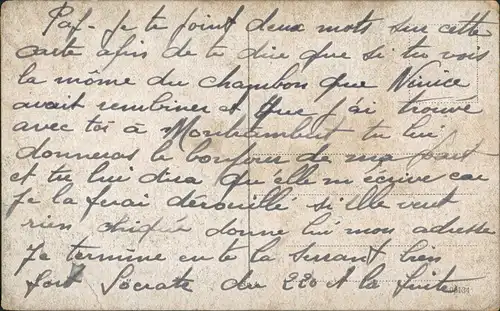 Paf - Je te joint deux mots sur cette
carte afin de te dire que si tu vois
la môme du chambon que Ninice
avait rembiner et que j'ai trouvé
avec toi à Montrambert tu lui
donneras le bonjour de ma part
et tu lui dira qu'elle m'écrive car
je la ferai dérouillé si elle veut
rien chiqué donne lui mon adresse
Je termine en te la serrant bien
fort Socrate du 220 et la fuite